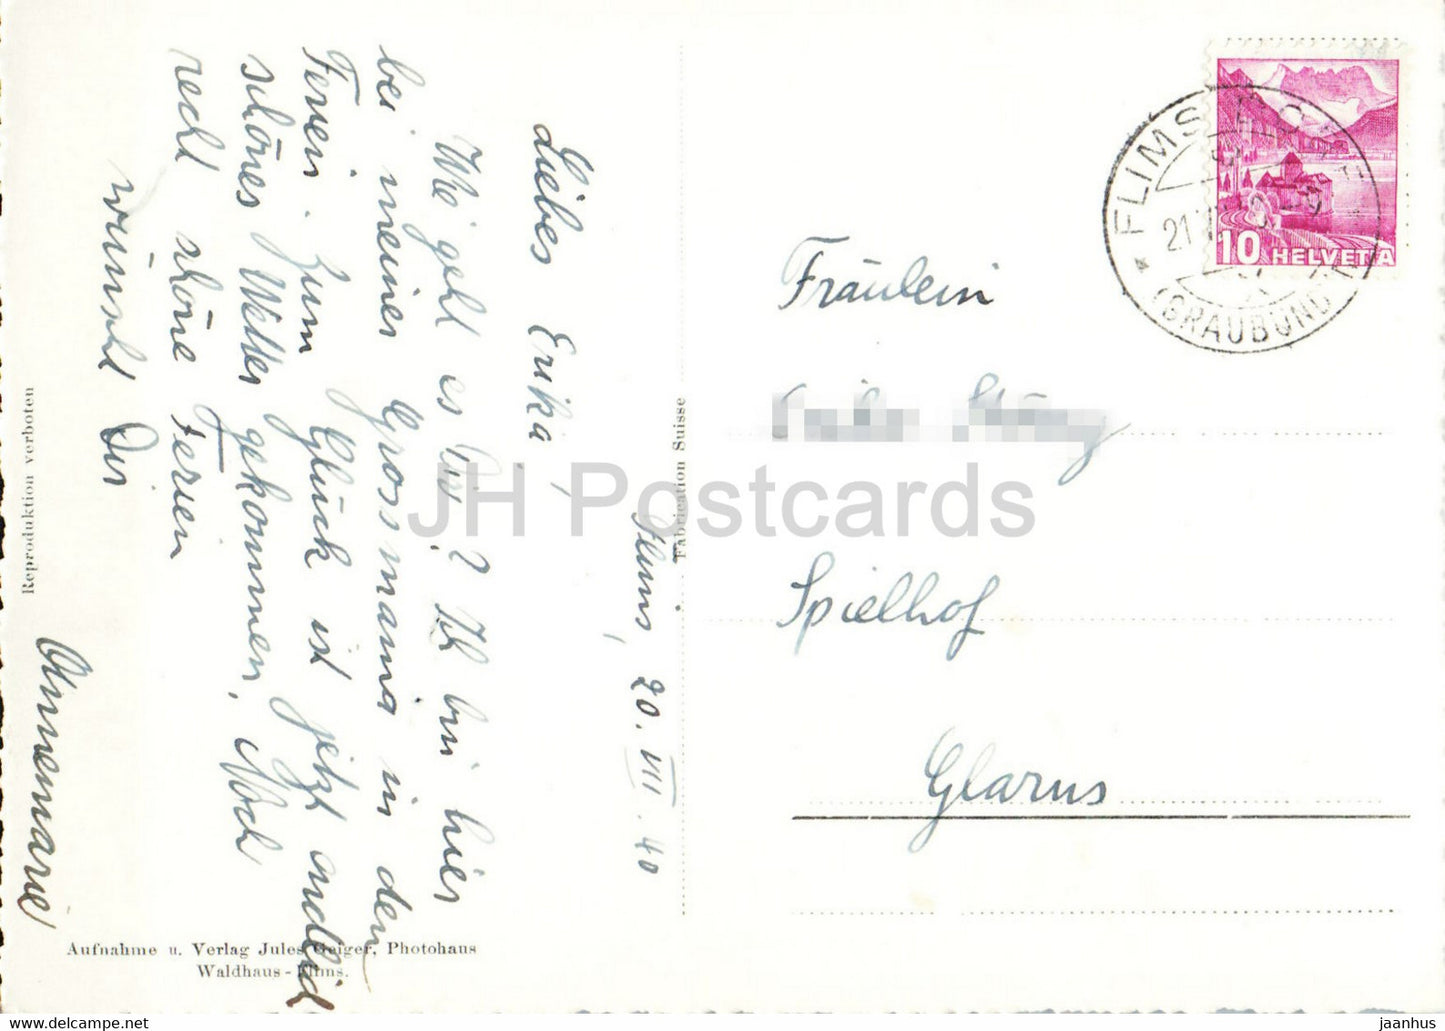 Flims, 20. VII. 40
Liebes Erika,
Wie geht es Dir? Ich bin hier
bei meiner Grossmama in den
Ferien. Zum Glück ist jetzt endlich
schönes Wetter gekommen. Noch
recht schöne Ferien
wünscht Dir
Annemarie
Aufnahme u. Verlag Jules Geiger, Photohaus
Waldhaus-Flims.
Reproduktion verboten
Fabrication Suisse
FLIMS DORF
(GRAUBÜND
10 HELVETIA
Fräulein
Spielhof
Glarus
JH Postcards
https://www.hippostcard.com/store/jaanhus